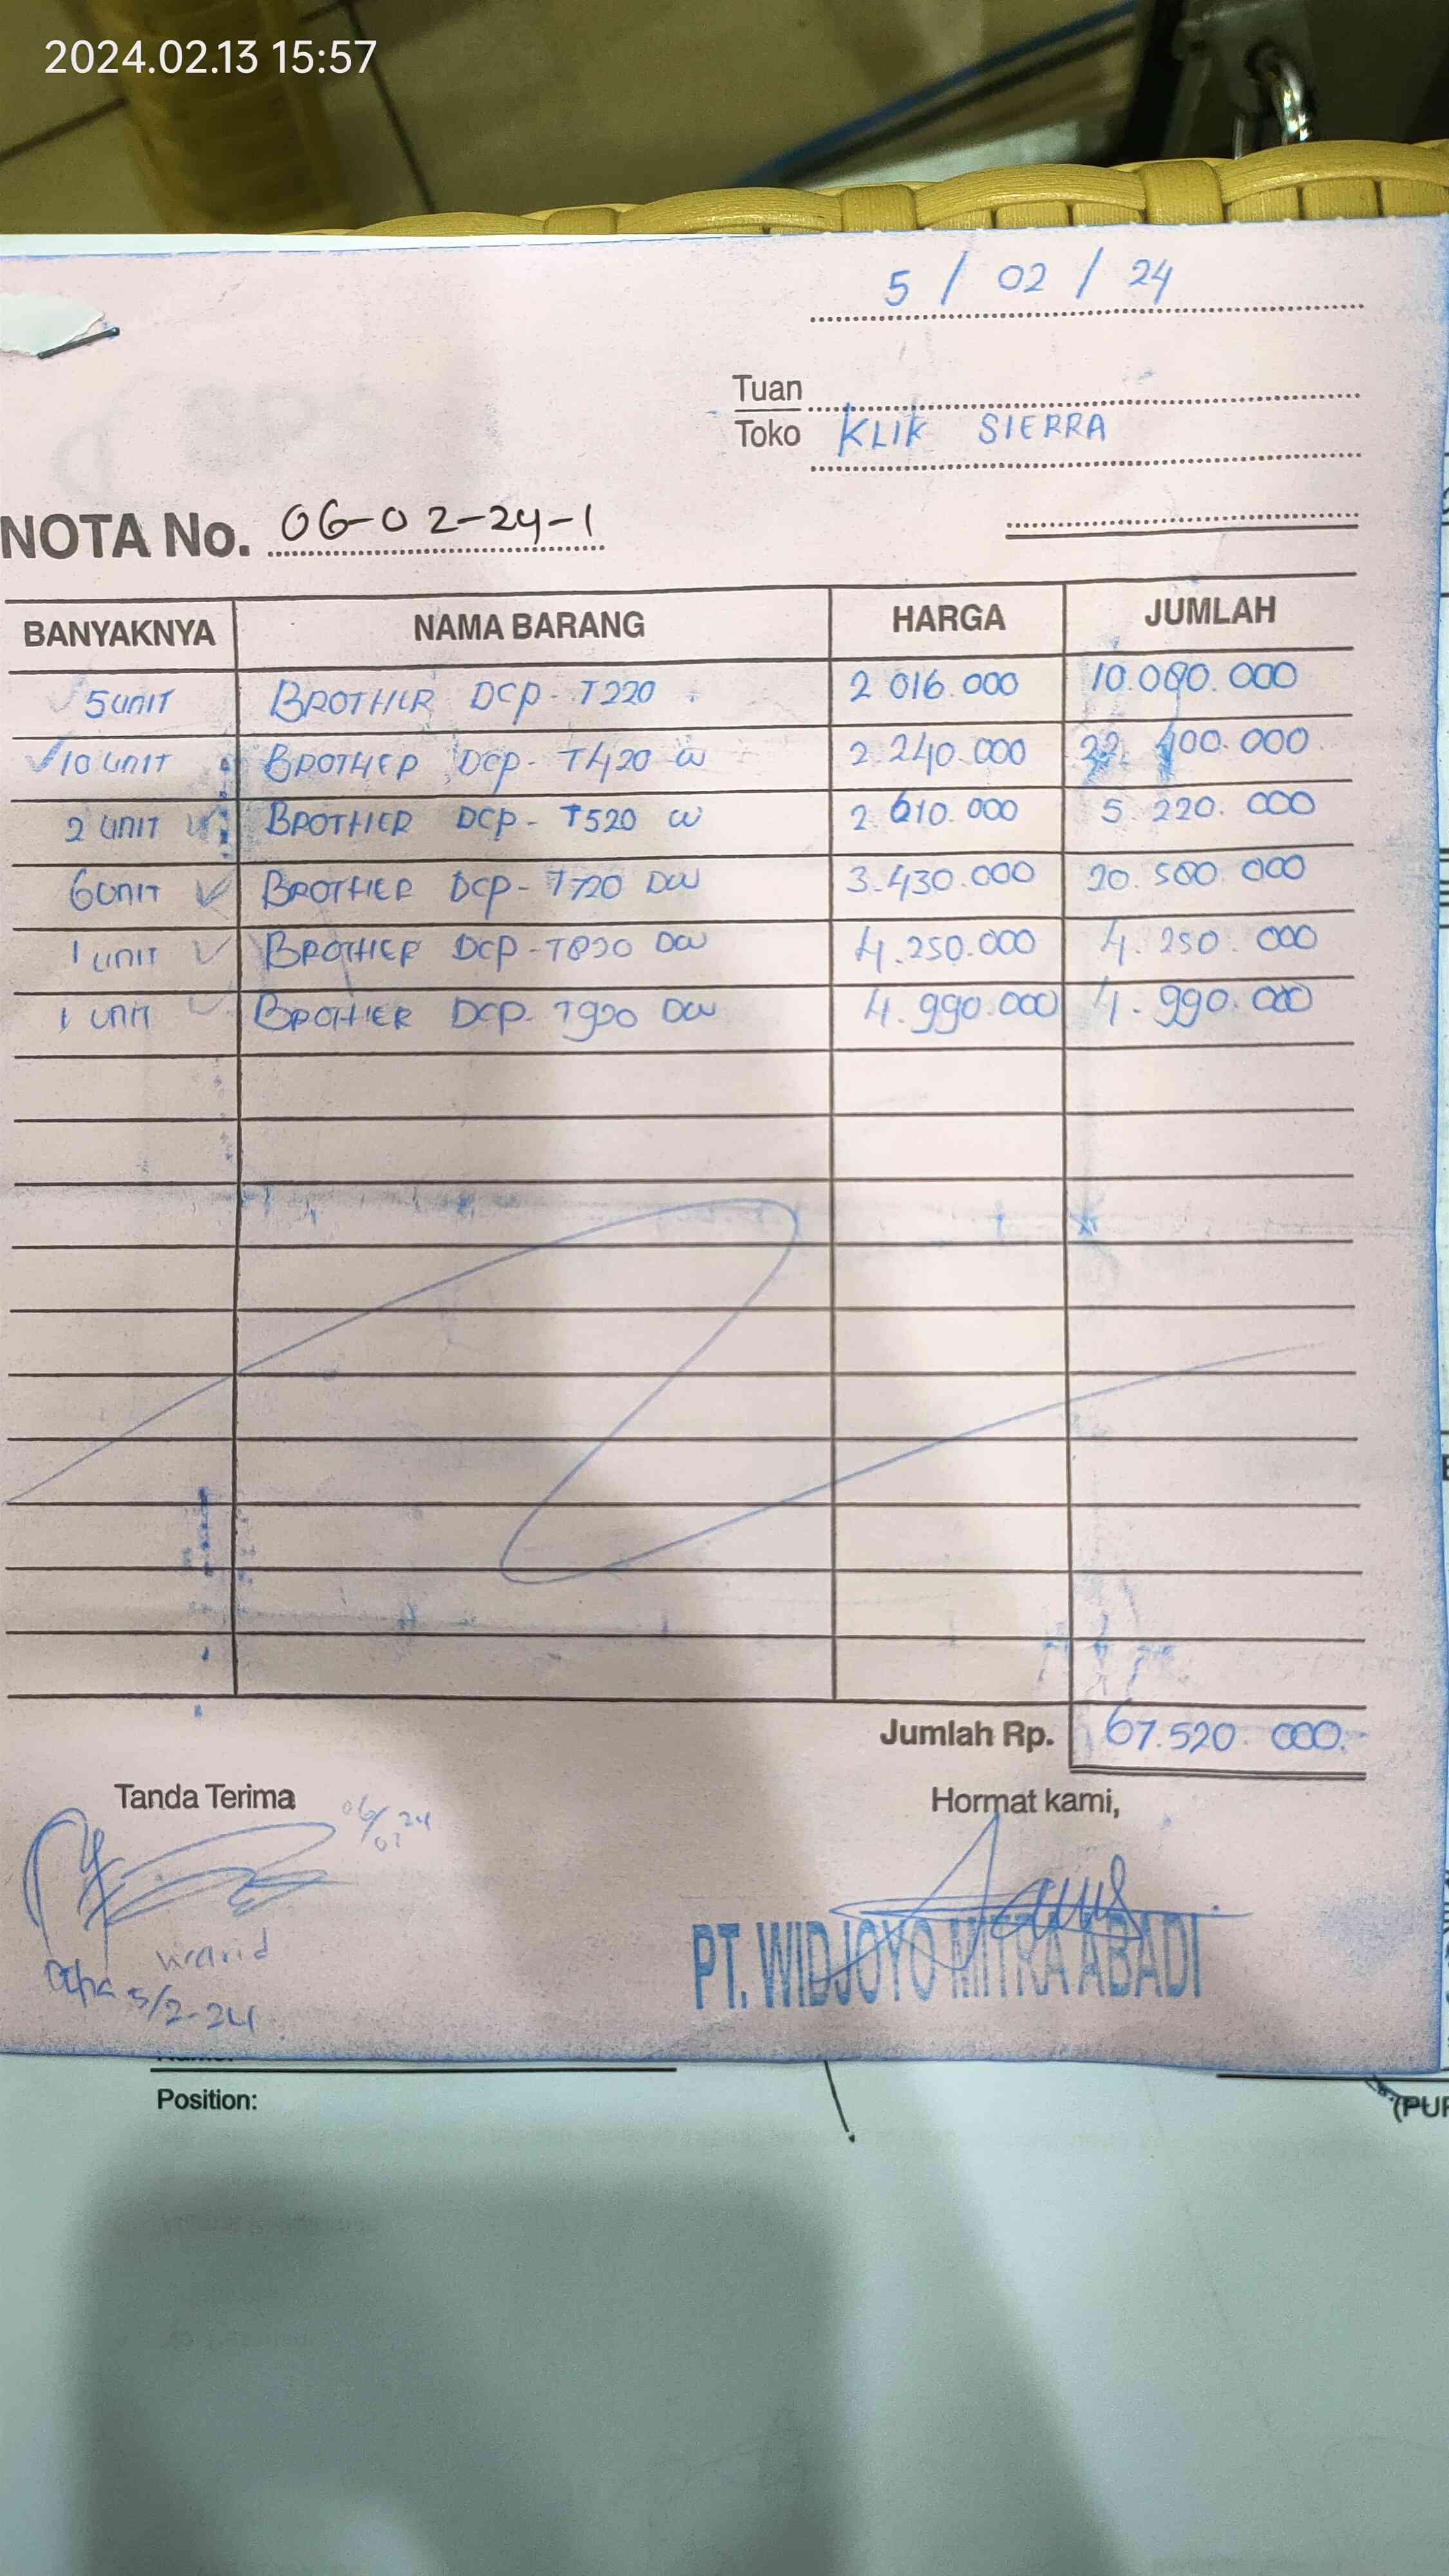 2024.02.13 15:57
5 / 02 / 24
Tuan
Toko KLIK SIERRA
NOTA No. 06-02-24-1
BANYAKNYA NAMA BARANG HARGA JUMLAH
5 UNIT BROTHER DCP - T220 2 016.000 10.080.000
10 UNIT BROTHER DCP - T420 W 2.240.000 22.400.000
2 UNIT BROTHER DCP - T520 W 2.610.000 5.220.000
6 UNIT BROTHER DCP - T720 DW 3.430.000 20.580.000
1 UNIT BROTHER DCP - T820 DW 4.250.000 4.250.000
1 UNIT BROTHER DCP - T920 DW 4.990.000 4.990.000
Jumlah Rp. 67.520.000.-
Tanda Terima Hormat kami,
PT. WIDJOYO MITRA ABADI
5/2-24
Position: